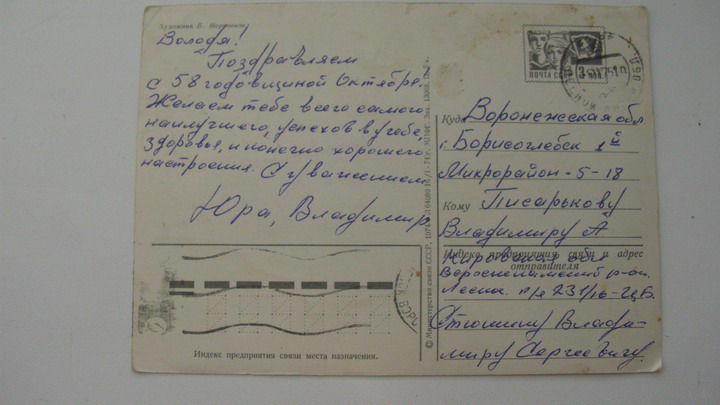 Володя!
Поздравляем
с 58 годовщиной Октября.
Желаем тебе всего самого
наилучшего, успехов в учебе,
здоровья, и конечно хорошего
настроения. С уважением
Юра, Владимир
Художник В.
ПОЧТА СССР
Куда Воронежская обл.
г. Борисоглебск 1й
Микрорайон - 5 - 18
Кому Писарькову
Владимиру А
Индекс предприятия связи и адрес
отправителя
Кировская обл
р-он.
Лесна. п/я 231/16-ЦБ.
Стюшину Влади-
миру Сергеевичу
© Министерство связи СССР, 1974
Индекс предприятия связи места назначения.